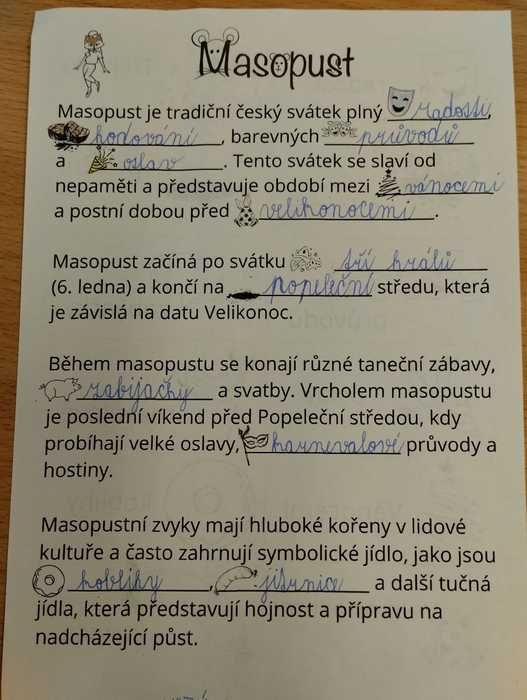 Masopust
Masopust je tradiční český svátek plný radosti,
hodování, barevných průvodů
a oslav. Tento svátek se slaví od
nepaměti a představuje období mezi vánocemi
a postní dobou před velikonocemi.
Masopust začíná po svátku tří králů
(6. ledna) a končí na popeleční středu, která
je závislá na datu Velikonoc.
Během masopustu se konají různé taneční zábavy,
zabijačky a svatby. Vrcholem masopustu
je poslední víkend před Popeleční středou, kdy
probíhají velké oslavy, karnevalové průvody a
hostiny.
Masopustní zvyky mají hluboké kořeny v lidové
kultuře a často zahrnují symbolické jídlo, jako jsou
koblihy, jitrnice a další tučná
jídla, která představují hojnost a přípravu na
nadcházející půst.